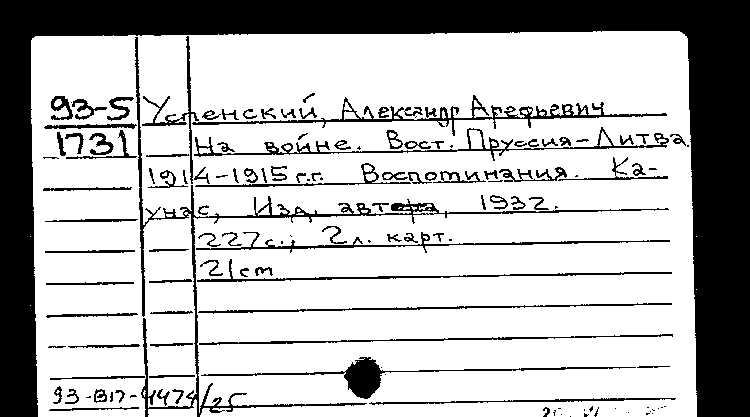 93-5 Успенский, Александр Арефьевич
1731 На войне. Вост. Пруссия-Литва
1914-1915 г.г. Воспоминания. Ка-
унас, Изд. автора, 1932.
227с.; 2л. карт.
21cm
93-B17-4474/25